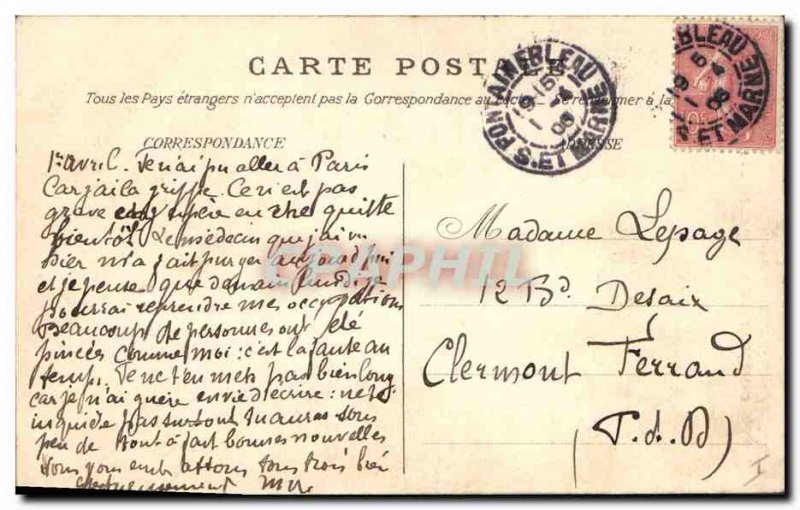 CARTE POSTALE
Tous les Pays étrangers n'acceptent pas la Correspondance au Recto. Se renseigner à la
CORRESPONDANCE
ADRESSE
FONTAINEBLEAU
S. ET MARNE
1er avril. Je n'ai pu aller à Paris
Car j'ai la grippe. Ce n'est pas
grave et j'espère en être quitte
bientôt. Le médecin que j'ai vu
hier m'a fait purger aujourd'hui
et je pense que demain lundi je
pourrai reprendre mes occupations
Beaucoup de personnes ont été
pincées comme moi : c'est la faute au
temps. Je ne t'en mets pas bien long
car je n'ai guère envie d'écrire : ne t'
inquiète pas surtout tu auras sous
peu de tout à fait bonnes nouvelles
Nous vous embrassons tous trois bien
affectueusement
Madame Lepage
12 Bd. Desaix
Clermont Ferrand
(P. d. D)
CPAPHIL